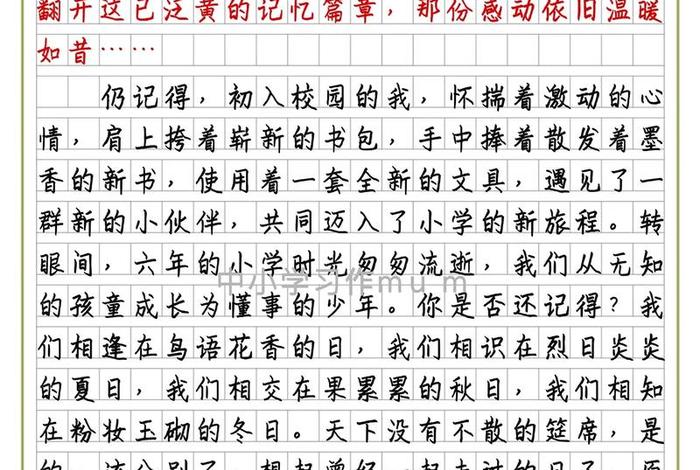 翻开这已泛黄的记忆篇章，那份感动依旧温暖
如昔……
仍记得，初入校园的我，怀揣着激动的心
情，肩上挎着崭新的书包，手中捧着散发着墨
香的新书，使用着一套全新的文具，遇见了一
群新的小伙伴，共同迈入了小学的新旅程。转
眼间，六年的小学时光匆匆流逝，我们从无知
中小学习作mu m
的孩童成长为懂事的少年。你是否还记得？我
们相逢在鸟语花香的日，我们相识在烈日炎炎
的夏日，我们相交在果累累的秋日，我们相知
在粉妆玉砌的冬日。天下没有不散的筵席，是